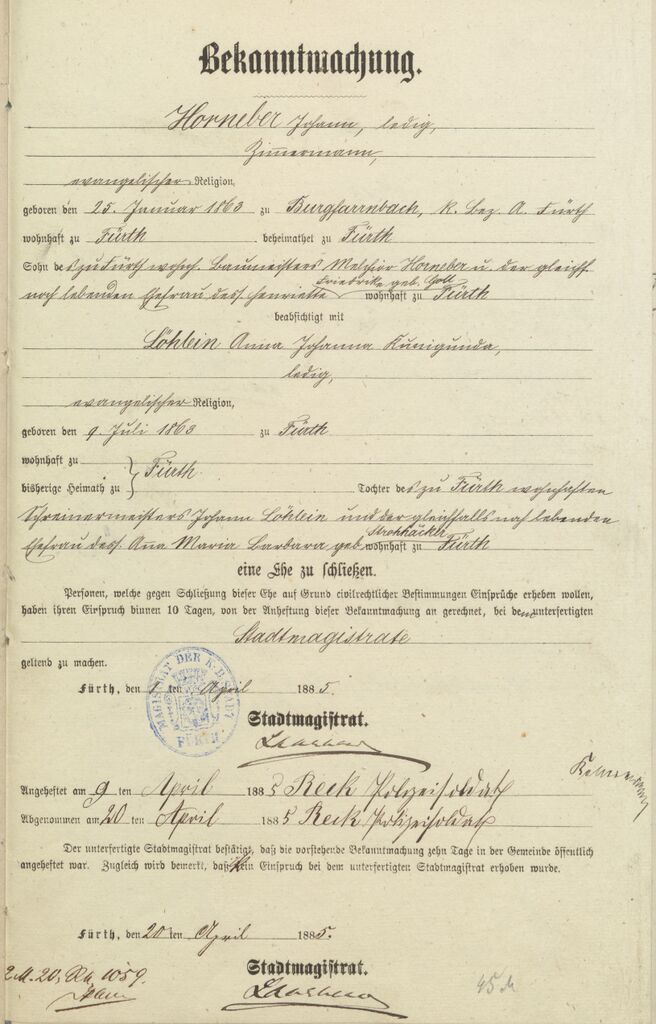 Bekanntmachung.
Horneber Johann, ledig,
Zimmermann,
evangelischer Religion,
geboren den 25. Januar 1863 zu Burgfarrnbach, K. Bez. A. Fürth
wohnhaft zu Fürth. beheimathet zu Fürth
Sohn des zu Fürth wohnh. Baumeisters Melchior Horneber u. der gleichf.
Friedrike geb. Goll
noch lebenden Ehefrau dess. Henriette wohnhaft zu Fürth
beabsichtigt mit
Löhlein Anna Johanna Kunigunda,
ledig,
evangelischer Religion,
geboren den 9. Juli 1863 zu Fürth
wohnhaft zu
Fürth
bisherige Heimath zu Tochter des zu Fürth wohnhaften
Schreinermeisters Johann Löhlein und der gleichfalls noch lebenden
Strohhäcker
Ehefrau dess. Ana Maria Barbara geb. wohnhaft zu Fürth
eine Ehe zu schließen.
Personen, welche gegen Schließung dieser Ehe auf Grund civilrechtlicher Bestimmungen Einsprüche erheben wollen,
haben ihren Einspruch binnen 10 Tagen, von der Anheftung dieser Bekanntmachung an gerechnet, bei dem unterfertigten
Stadtmagistrate
geltend zu machen.
MAGISTRAT DER K. B. STADT FÜRTH
Fürth, den 1 ten April 1885.
Stadtmagistrat.
Angeheftet am 9 ten April 1885 Reck Polizeisoldat
Abgenommen am 20 ten April 1885 Reck Polizeisoldat
Der unterfertigte Stadtmagistrat bestätigt, daß die vorstehende Bekanntmachung zehn Tage in der Gemeinde öffentlich
angeheftet war. Zugleich wird bemerkt, daß kein Einspruch bei dem unterfertigten Stadtmagistrat erhoben wurde.
Fürth, den 20 ten April 1885.
Stadtmagistrat.
2 M. 20, 1059.
45